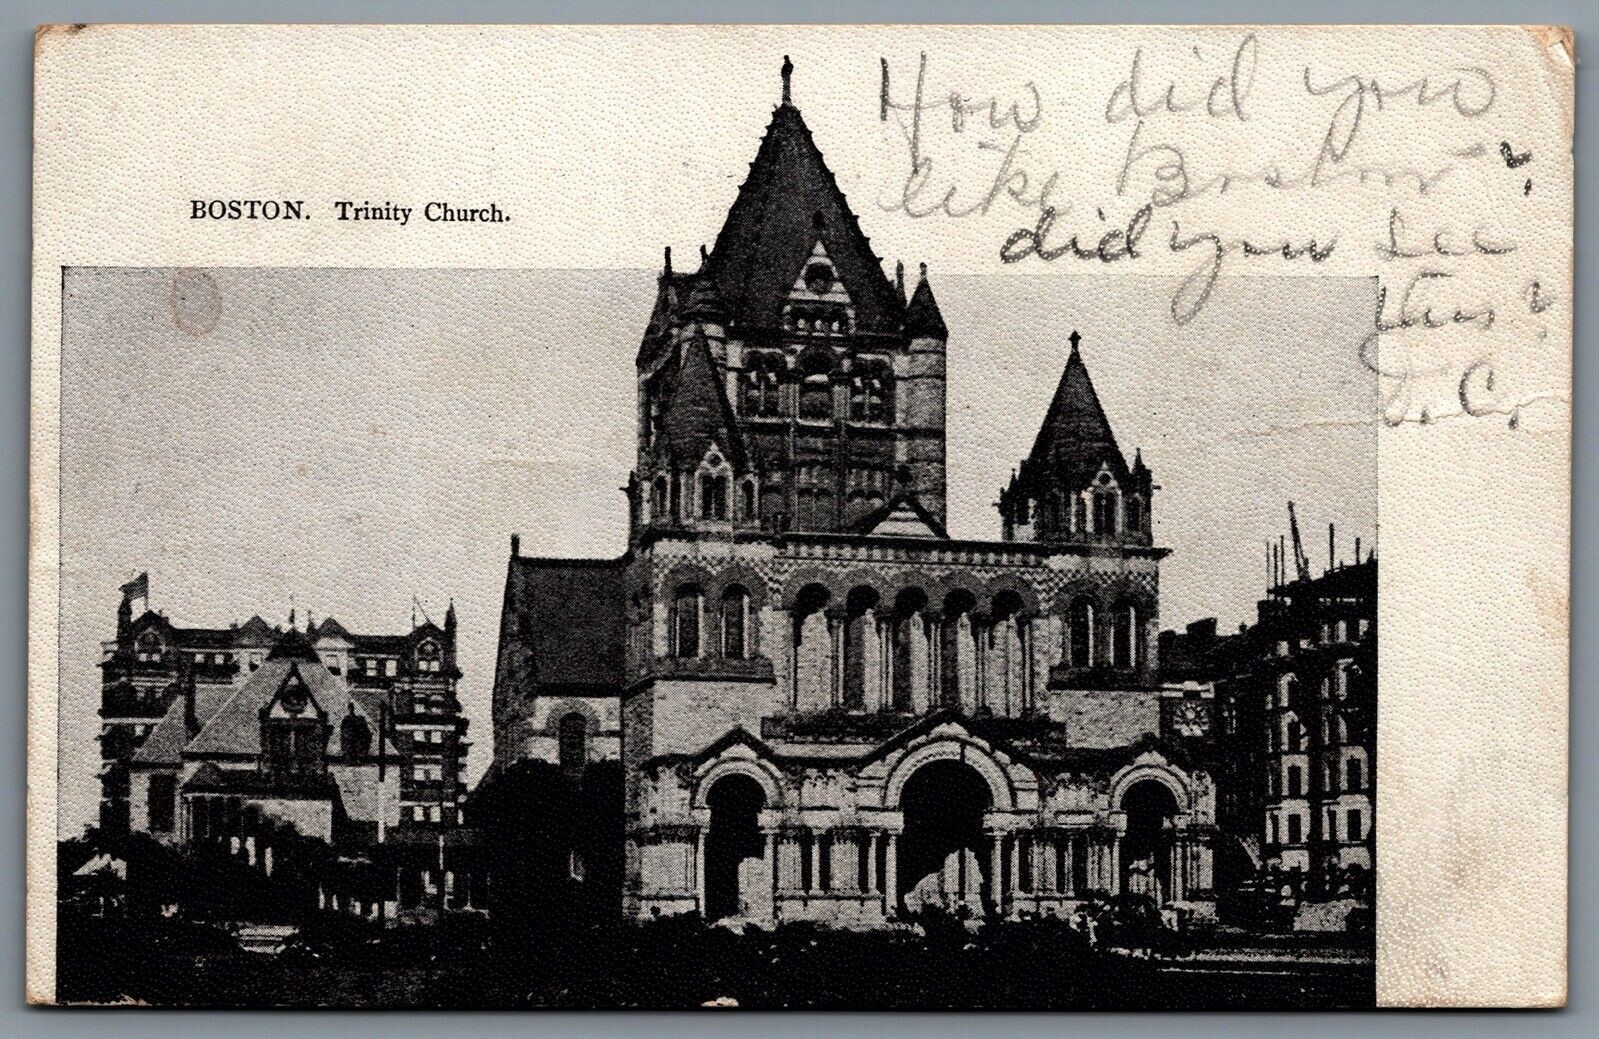 How did you
like Boston?
did you see
this?
D.C.
BOSTON. Trinity Church.